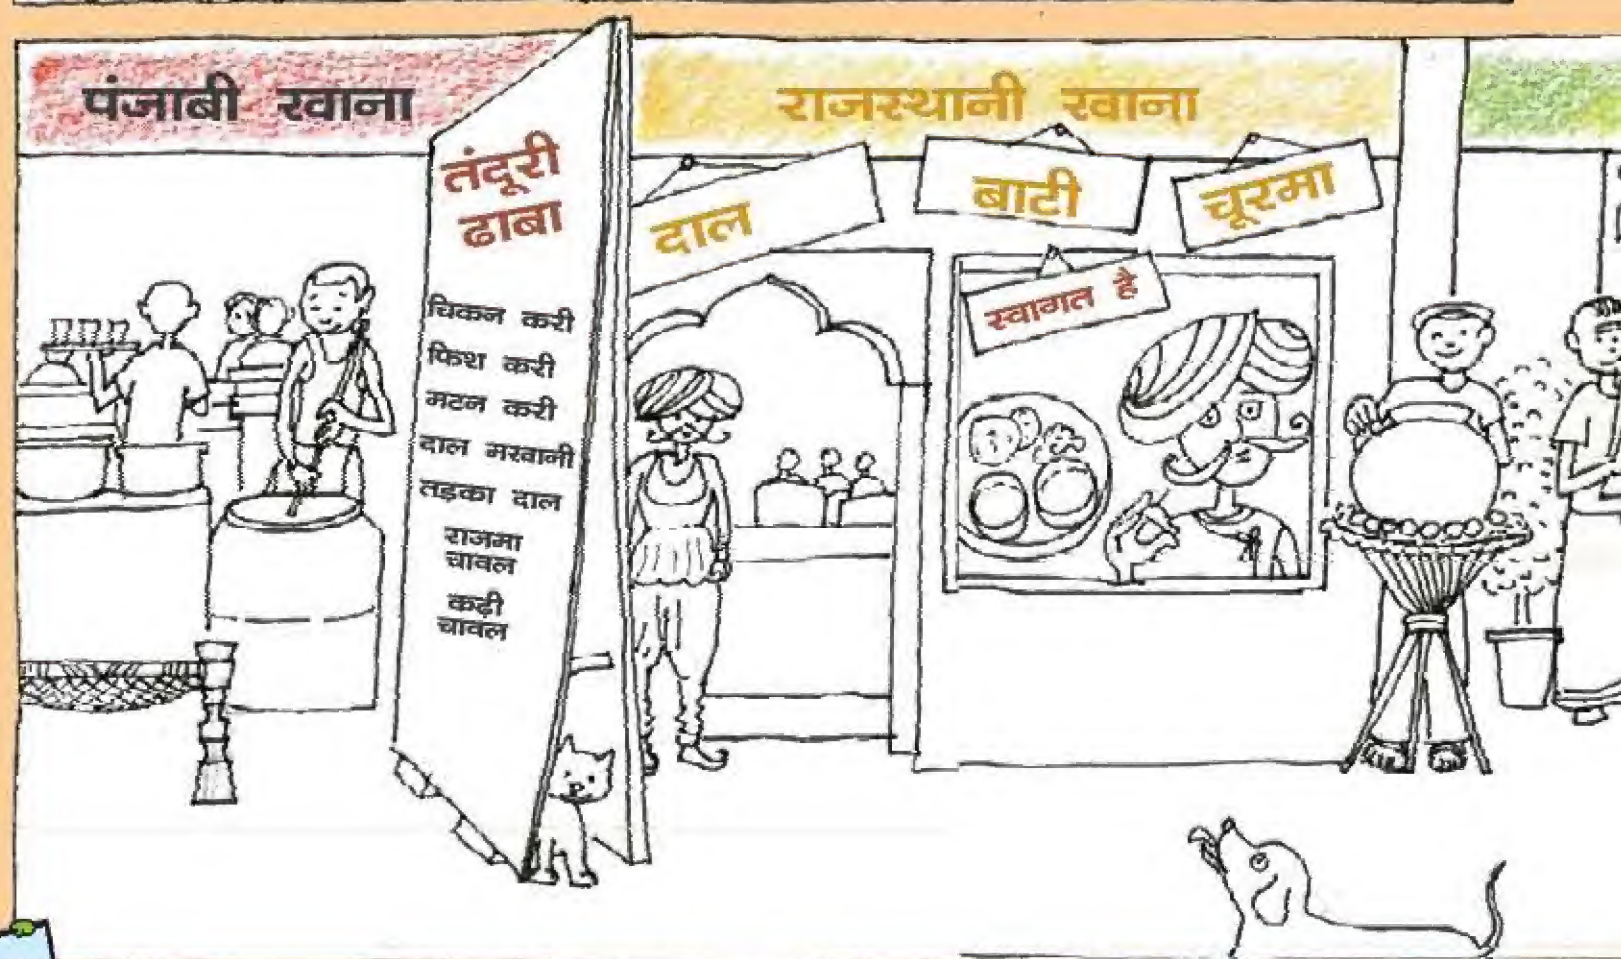 पंजाबी खाना
तंदूरी
ढाबा
चिकन करी
फिश करी
मटन करी
दाल मखानी
तड़का दाल
राजमा
चावल
कढ़ी
चावल
राजस्थानी खाना
दाल
बाटी
चूरमा
स्वागत है